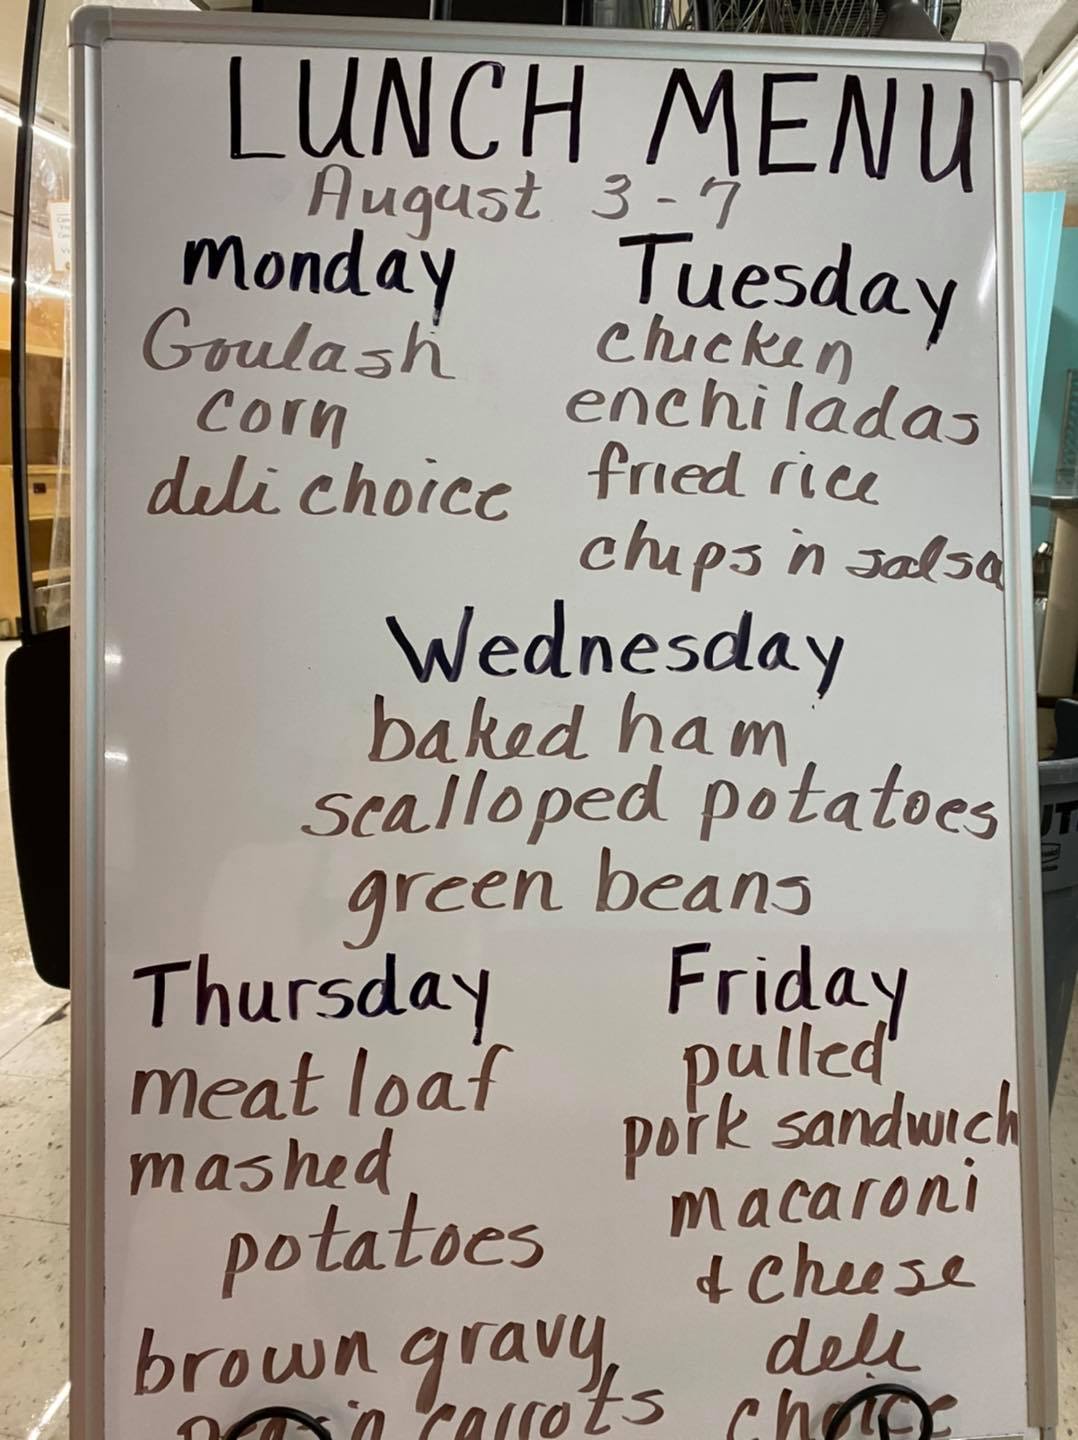 LUNCH MENU
August 3-7
Monday
Goulash
corn
deli choice
Tuesday
chicken
enchiladas
fried rice
chips 'n salsa
Wednesday
baked ham
scalloped potatoes
green beans
Thursday
meat loaf
mashed
potatoes
brown gravy
peas 'n carrots
Friday
pulled
pork sandwich
macaroni
& cheese
deli
choice